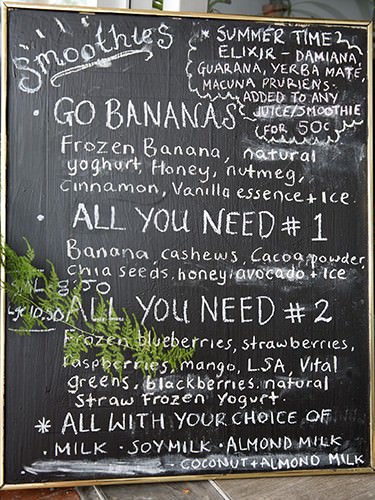 Smoothies
* SUMMER TIME
ELIXIR - DAMIANA,
GUARANA, YERBA MATÉ,
MACUNA PRURIENS.
ADDED TO ANY
JUICE/SMOOTHIE
FOR 50c
· GO BANANAS
Frozen Banana, natural
yoghurt, Honey, nutmeg,
cinnamon, Vanilla essence + Ice.
· ALL YOU NEED # 1
Banana, cashews, Cacao powder
chia seeds, honey, avocado + Ice
8.50
Lge 10.50
ALL YOU NEED # 2
Frozen blueberries, strawberries,
raspberries, mango, LSA, Vital
greens, blackberries, natural
Straw Frozen Yogurt.
* ALL WITH YOUR CHOICE OF
· MILK · SOY MILK · ALMOND MILK
- COCONUT + ALMOND MILK